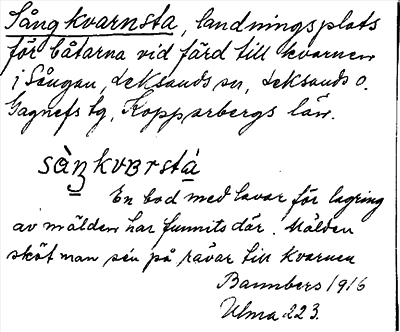 Sångkvarnsta, landningsplats
för båtarna vid färd till kvarnen
i Sångån, Leksands sn, Leksands o.
Gagnefs tg, Kopparbergs län.
sàŋkvɒrstà
En bod med lavar för lagring
av mälden har funnits där. Mälden
sköt man sen på rävar till kvarnen
Bannbers 1916
Ulma 223.